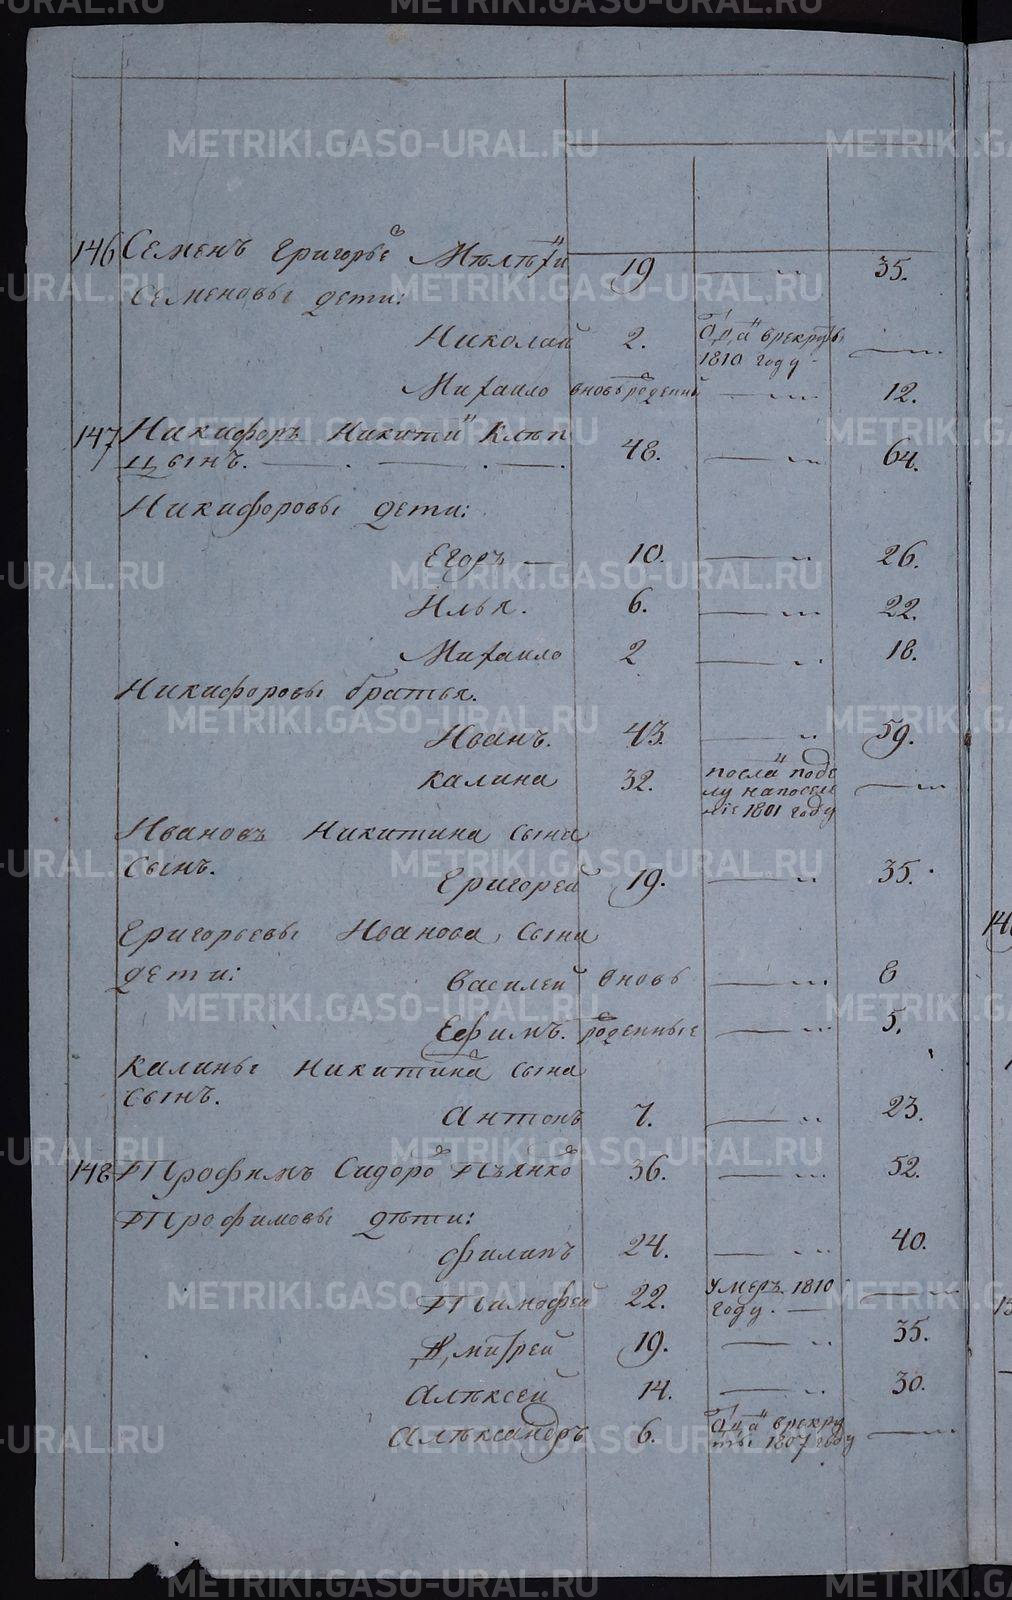 146 Семенъ Григорьев Мѣлѣхи 19 35.
Семеновы дети:
Николай 2. Отдан в рекруты
1810 году
Михаило вновь роденный 12.
147 Никифоръ Никитин Клѣп
цынъ. 48. 64.
Никифоровы дети:
Егоръ 10. 26.
Илья. 6. 22.
Михаило 2 18.
Никифоровы братья.
Иванъ. 43. 59.
Калина 32. послан по де
лу на поселе
ніе 1801 году
Ивановъ Никитина сына
сынъ.
Григорей 19. 35.
Григорьевы Иванова сына
дети:
Василей вновь 8
Ефимъ. роденные 5.
Калины Никитина сына
сынъ.
Антонъ 7. 23.
148 Трофимъ Сидоров Пьянков 36. 52.
Трофимовы дѣти:
Филипъ 24. 40.
Тимофей 22. умеръ 1810
году.
Дмитрей 19. 35.
Алѣксей 14. 30.
Алѣксандръ 6. Отдан в рекру
ты 1807 году
METRIKI.GASO-URAL.RU